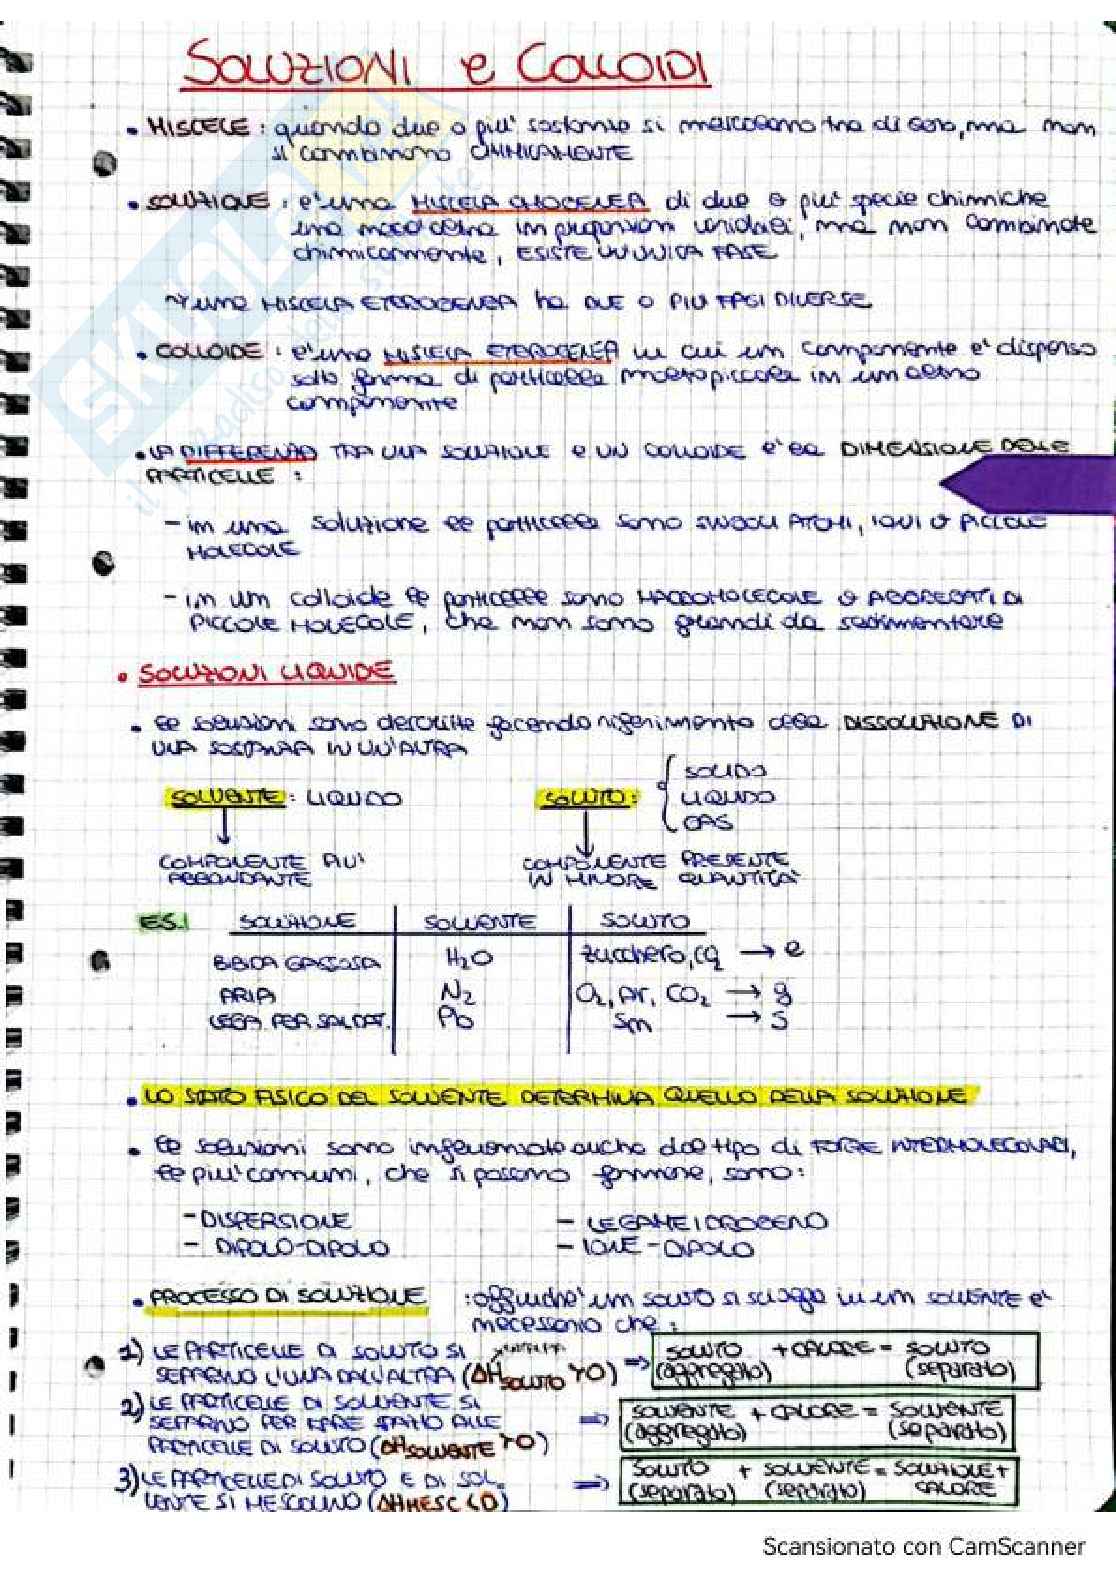 SOLUZIONI e COLLOIDI
• MISCELE : quando due o più sostanze si mescolano tra di loro, ma non
si combinano CHIMICAMENTE
• SOLUZIONE : è una MISCELA OMOGENEA di due o più specie chimiche
una nell'altra in proporzioni variabili, ma non combinate
chimicamente, ESISTE UN'UNICA FASE
↳ una MISCELA ETEROGENEA ha DUE O PIÙ FASI DIVERSE
• COLLOIDE : è una MISCELA ETEROGENEA in cui un componente è disperso
sotto forma di particelle molto piccole in un altro
componente
• LA DIFFERENZA TRA UNA SOLUZIONE E UN COLLOIDE è la DIMENSIONE DELLE
PARTICELLE :
- in una soluzione le particelle sono SINGOLI ATOMI, IONI O PICCOLE
MOLECOLE
- in un colloide le particelle sono MACROMOLECOLE O AGGREGATI DI
PICCOLE MOLECOLE, che non sono grandi da sedimentare
• SOLUZIONI LIQUIDE
• le soluzioni sono descritte facendo riferimento alla DISSOLUZIONE DI
UNA SOSTANZA IN UN'ALTRA
SOLVENTE : LIQUIDO SOLUTO : SOLIDO
LIQUIDO
GAS
COMPONENTE PIÙ COMPONENTE PRESENTE
ABBONDANTE IN MINORE QUANTITÀ
ES.! SOLUZIONE SOLVENTE SOLUTO
BIBITA GASSOSA H₂O zucchero, → l
ARIA N₂ O₂, Ar, CO₂ → g
LEGA PER SALDAT. Pb Sn → S
• LO STATO FISICO DEL SOLVENTE DETERMINA QUELLO DELLA SOLUZIONE
• le soluzioni sono influenzate anche dal tipo di FORZE INTERMOLECOLARI,
le più comuni, che si possono formare, sono:
- DISPERSIONE - LEGAME IDROGENO
- DIPOLO-DIPOLO - IONE-DIPOLO
• PROCESSO DI SOLUZIONE : affinché un SOLUTO si sciolga in un SOLVENTE è
necessario che :
1) LE PARTICELLE DI SOLUTO SI
SEPARINO L'UNA DALL'ALTRA (ΔH SOLUTO >0) ⇒ SOLUTO (aggregato) + CALORE = SOLUTO (separato)
2) LE PARTICELLE DI SOLVENTE SI
SEPARINO PER FARE SPAZIO ALLE
PARTICELLE DI SOLUTO (ΔH SOLVENTE >0) ⇒ SOLVENTE (aggregato) + CALORE = SOLVENTE (separato)
3) LE PARTICELLE DI SOLUTO E DI SOL-
VENTE SI MESCOLINO (ΔH MESC <0) ⇒ SOLUTO (separato) + SOLVENTE (separato) = SOLUZIONE + CALORE
Scansionato con CamScanner